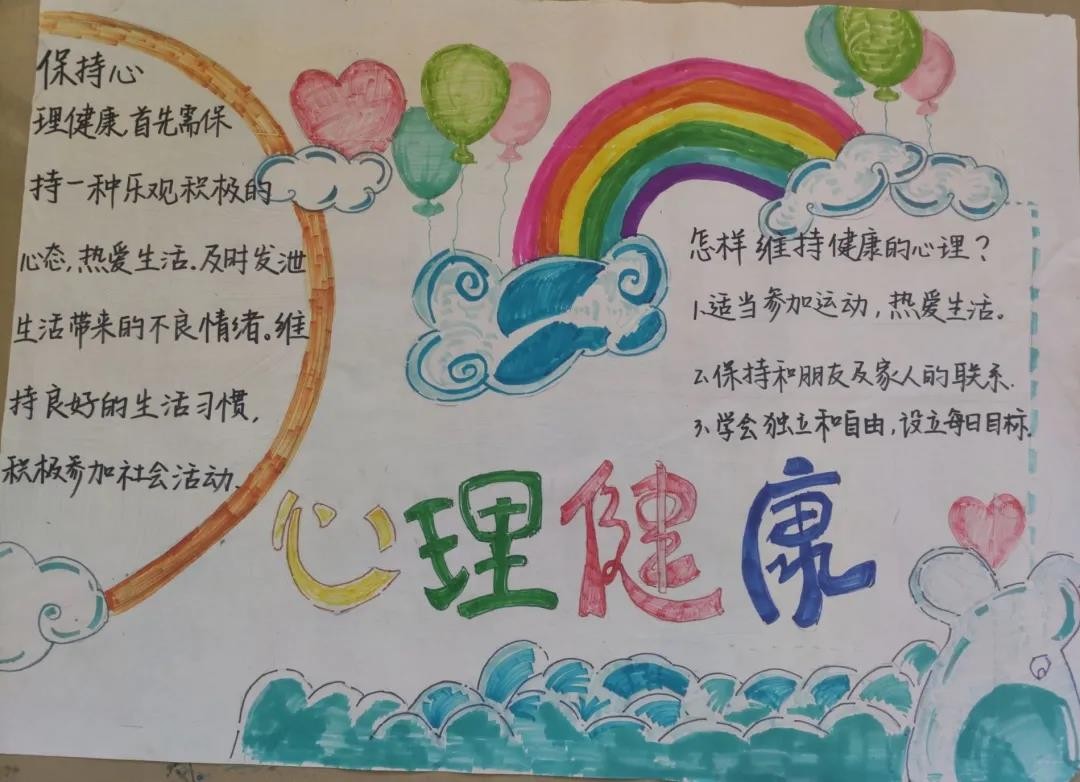 保持心
理健康首先需保
持一种乐观积极的
心态,热爱生活.及时发泄
生活带来的不良情绪。维
持良好的生活习惯,
积极参加社会活动、
怎样维持健康的心理？
1.适当参加运动,热爱生活。
2.保持和朋友及家人的联系.
3、学会独立和自由,设立每日目标.
心理健康